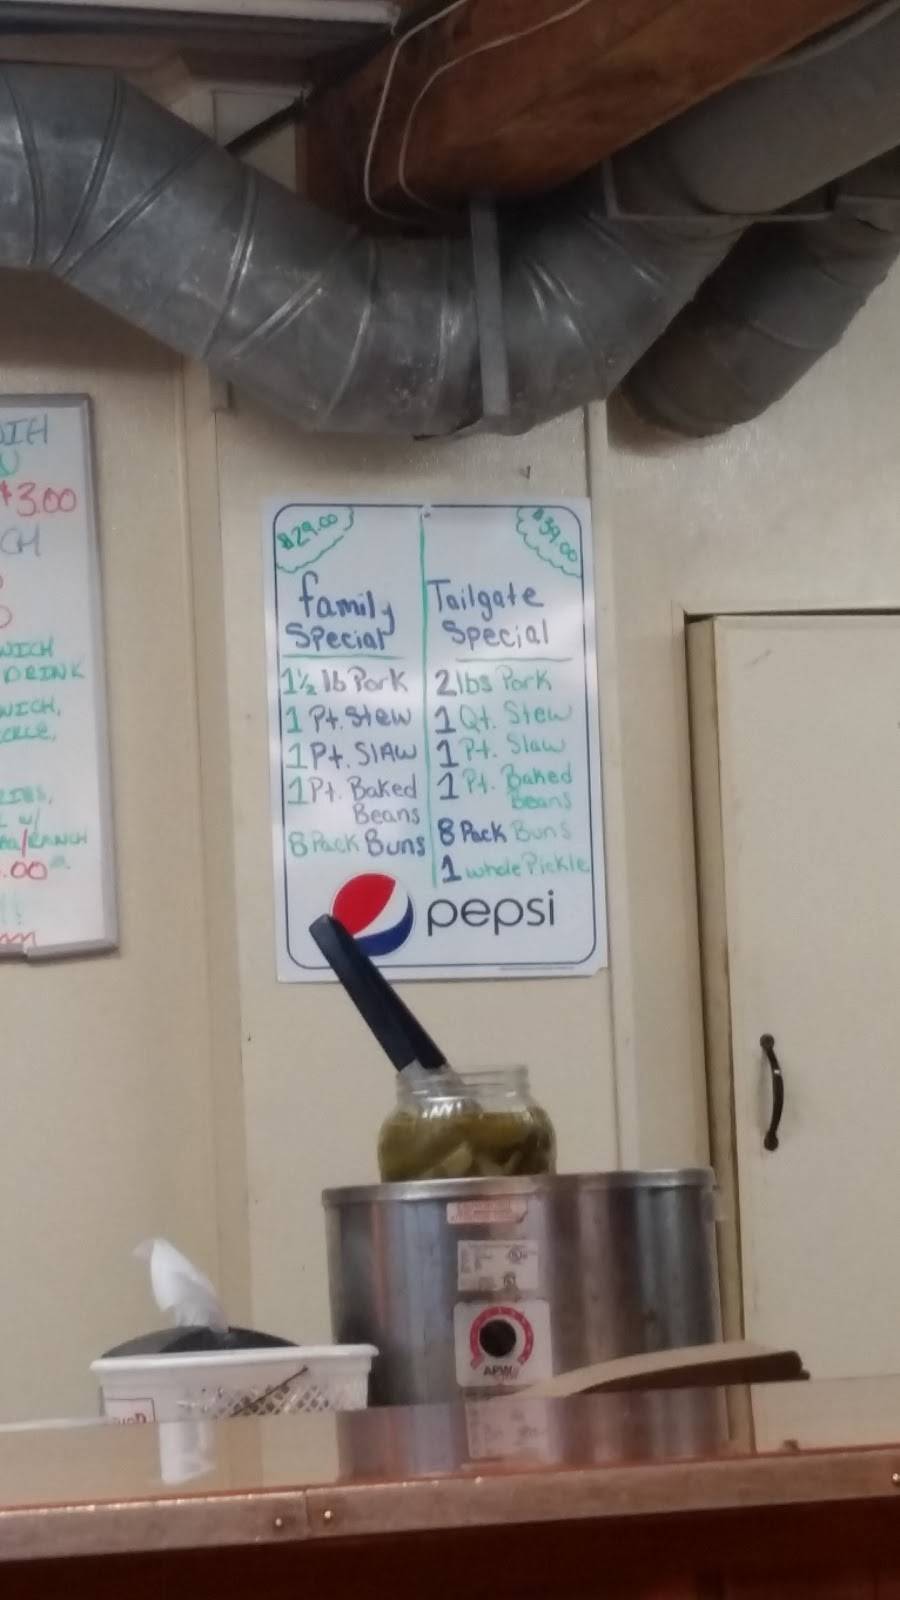 $3.00
CH
DRINK
.00
$29.00
family
Special
1½ lb Pork
1 Pt. Stew
1 Pt. SlAW
1 Pt. Baked
Beans
8 Pack Buns
$39.00
Tailgate
Special
2 lbs Pork
1 Qt. Stew
1 Pt. Slaw
1 Pt. Baked
Beans
8 Pack Buns
1 whole Pickle
pepsi
APW